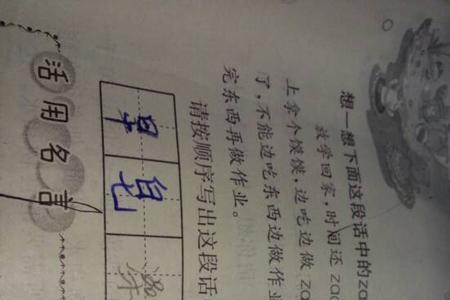 想一想下面这段话中的za
放学回家,时间还zao
上拿个馍馍,边吃边做zo
了,不能边吃东西边做作业
完东西再做作业。
请按顺序写出这段话
早 皂
活用名言